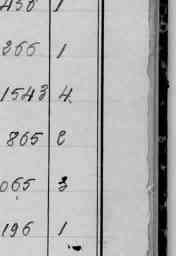 456 1
266 1
1543 4
865 2
065 3
196 1